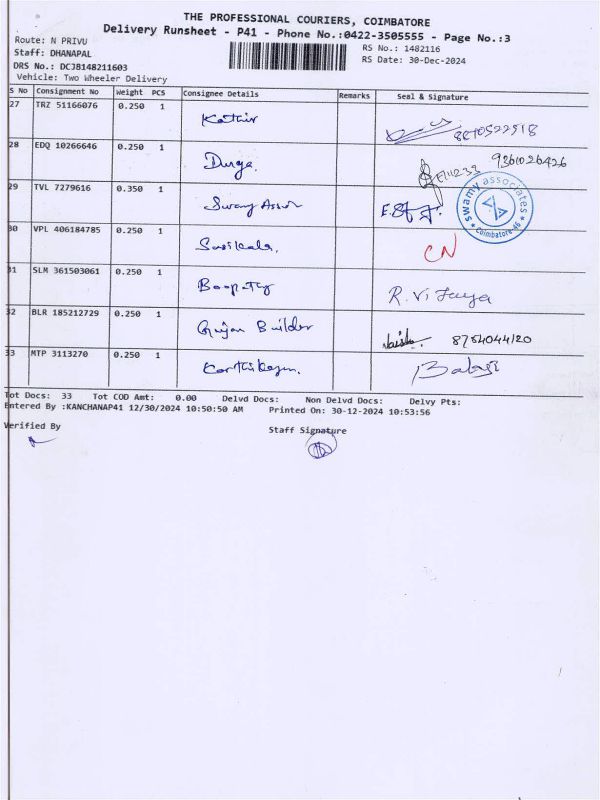 THE PROFESSIONAL COURIERS, COIMBATORE
Delivery Runsheet - P41 - Phone No.:0422-3505555 - Page No.:3
Route: N PRIVU
RS No.: 1482116
Staff: DHANAPAL
RS Date: 30-Dec-2024
DRS No.: DCJB148211603
Vehicle: Two Wheeler Delivery
S No Consignment No Weight PCS Consignee Details Remarks Seal & Signature
27 TRZ 51166076 0.250 1 Kathir
28 EDQ 10266646 0.250 1 Durga 9361026426
29 TVL 7279616 0.350 1 Swamy Assor
swamy associates
★ Coimbatore-46 ★
30 VPL 406184785 0.250 1 Sasikala. CN
31 SLM 361503061 0.250 1 Boopathy R. Vijaya
32 BLR 185212729 0.250 1 Builder 8754044120
33 MTP 3113270 0.250 1 Karthikeyan. Balaji
Tot Docs: 33 Tot COD Amt: 0.00 Delvd Docs: Non Delvd Docs: Delvy Pts:
Entered By :KANCHANAP41 12/30/2024 10:50:50 AM Printed On: 30-12-2024 10:53:56
Verified By Staff Signature